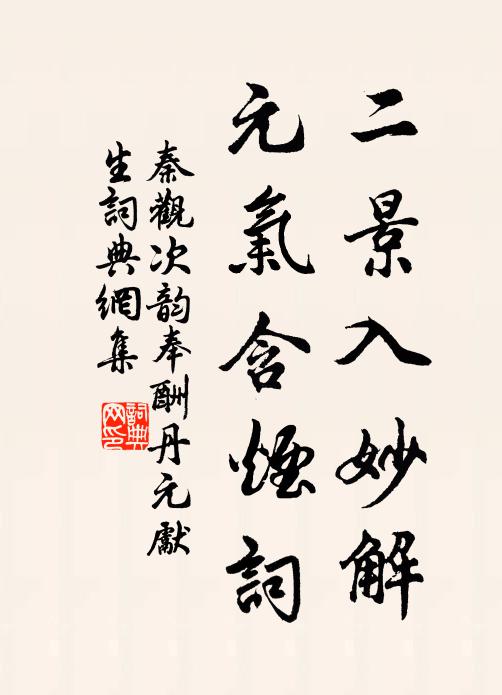 二景入妙解
元氣含煙詞
秦觀次韵奉酬丹元獻
生詞典網集
詞典网印